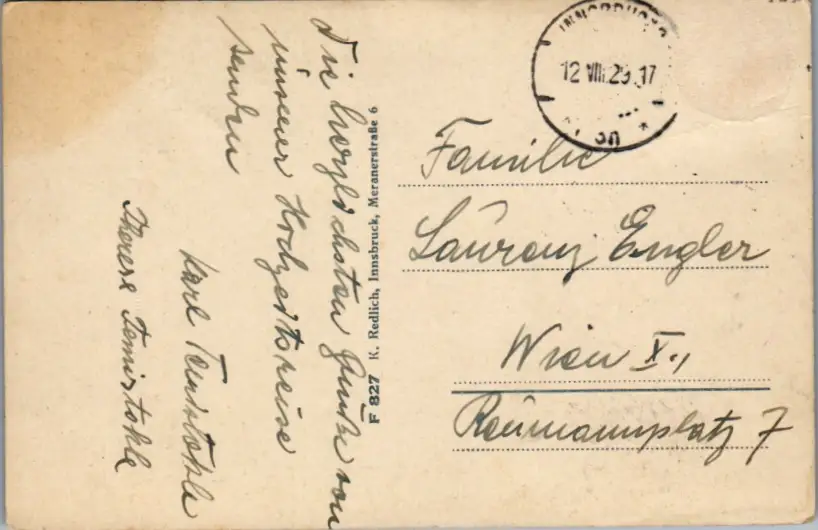 Die herzlichsten Grüße von
unserer Hochzeitsreise
senden
Karl
Therese
F 827 K. Redlich, Innsbruck, Meranerstraße 6
INNSBRUCK
12 VIII.29.17
Familie
Laurenz Engler
Wien X.,
Reumannplatz 7